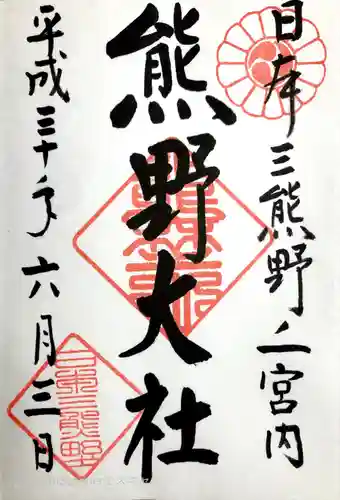 日本三熊野上宮内
熊野大社
平成三十年六月三日
日本三熊野